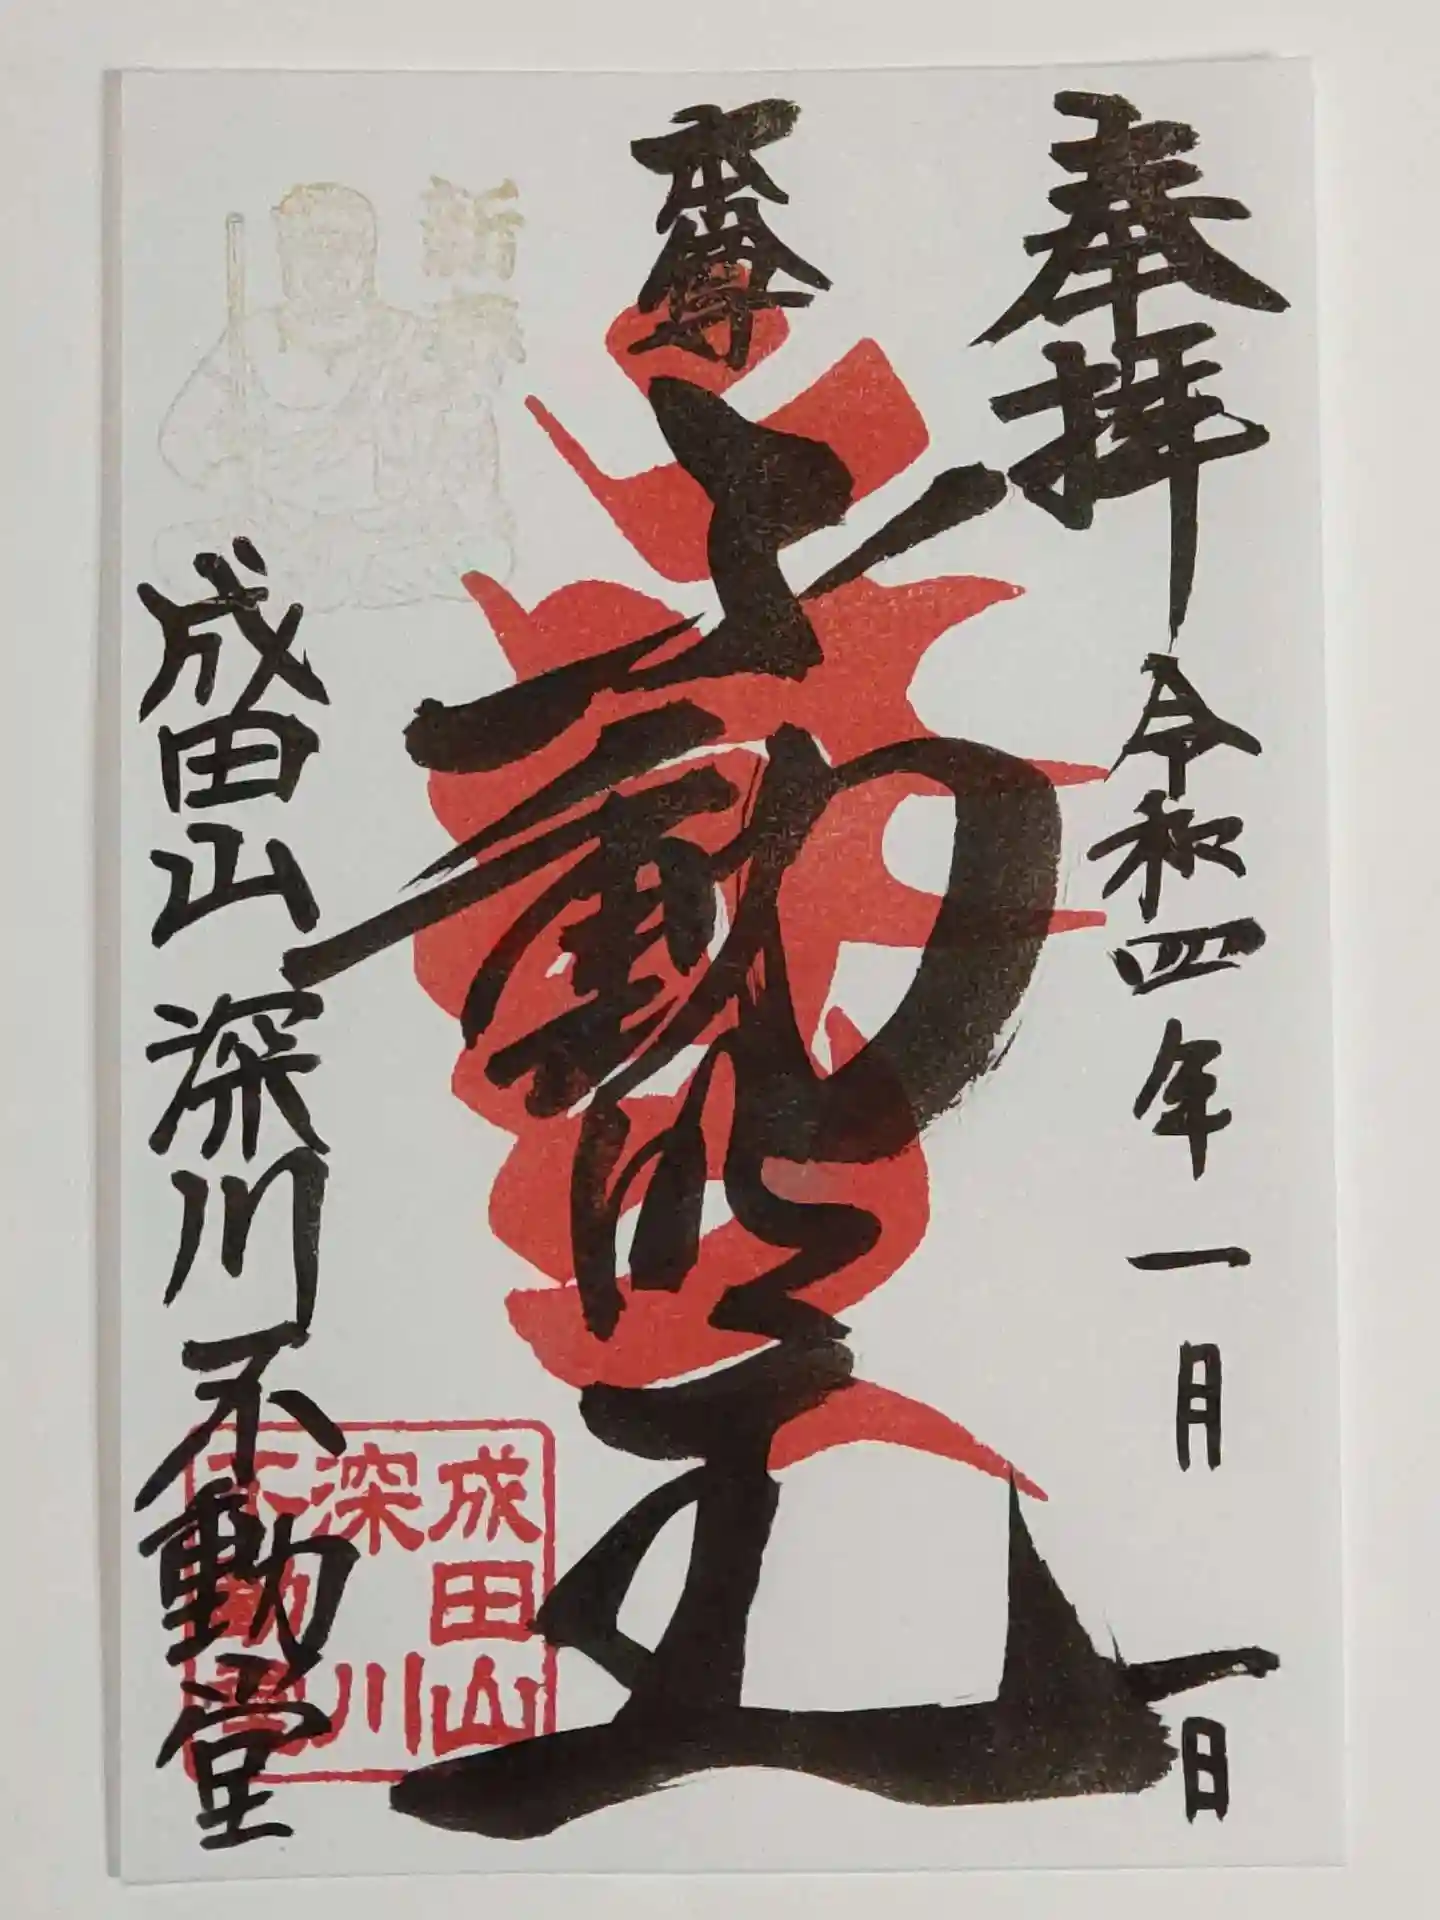 奉拝 令和四年一月一日
本尊
不動明王
新春
成田山 深川不動堂
成田山
深川
不動堂